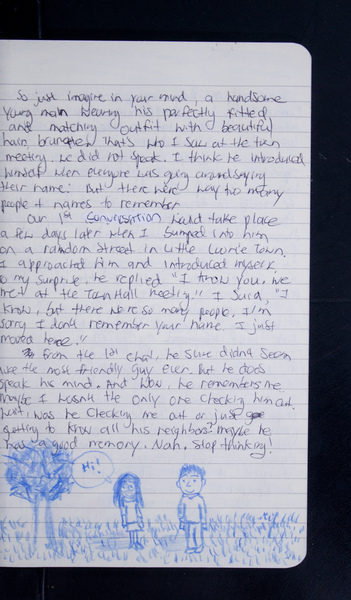 So just imagine in your mind, a handsome
young man wearing his perfectly fitted
and matching outfit with beautiful
hair. That's who I saw at the town
meeting. We did not speak. I think he introduced
himself when everyone was going around saying
their name. But there were way too many
people & names to remember
Our 1st conversation would take place
a few days later when I bumped into him
on a random street in Little Town.
I approached him and introduced myself.
to my surprise, he replied "I know you, we
met at the Town Hall meeting." I said, "I
know, but there were so many people. I'm
sorry I don't remember your name. I just
moved here."
From the 1st chat, he sure didn't seem
like the most friendly guy ever. but he does
speak his mind. And wow, he remembers me.
maybe I wasn't the only one checking him out.
Wait, was he checking me out or just
getting to know all his neighbors? maybe he
has a good memory. Nah. Stop thinking!
Hi!